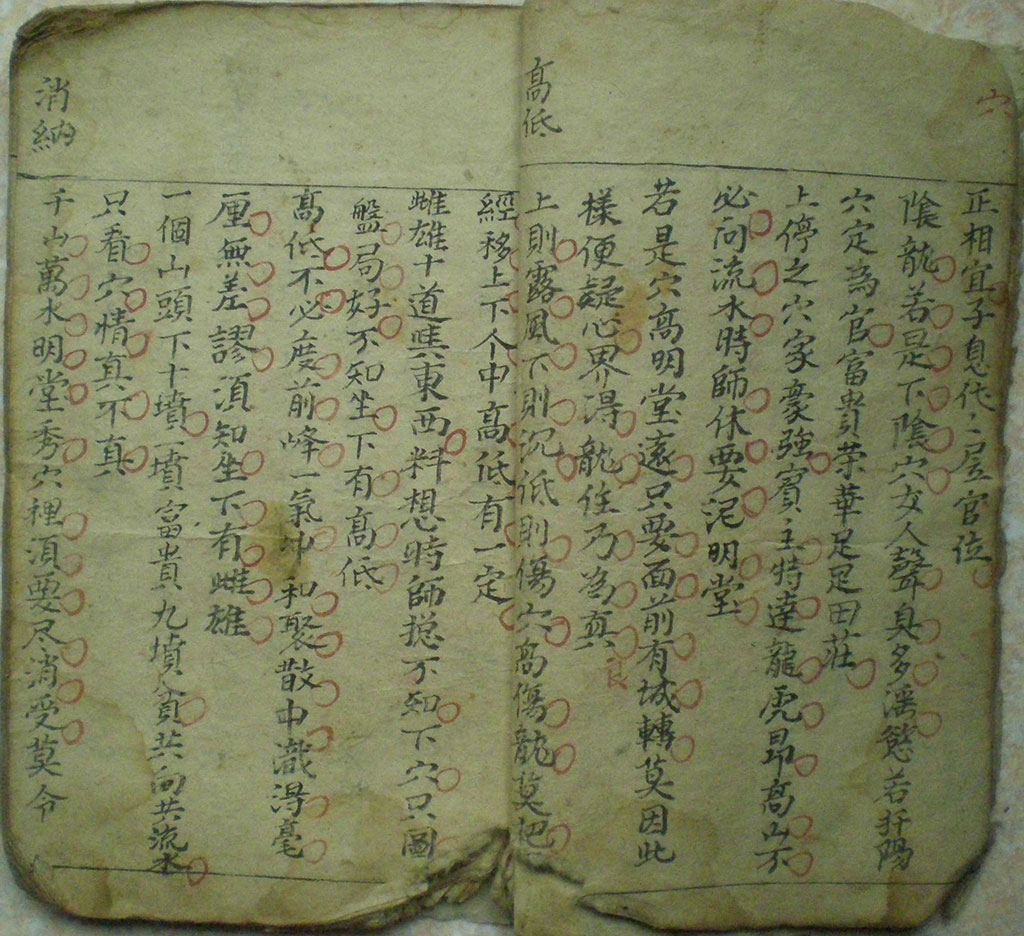 穴
高低
正相宜子息代〻居官位
陰龍若是下陰穴女人聲臭多滛慾若扦陽
穴定為官富貴荣華足足田莊
上停之穴家豪強賓主特達龍虎昻高山不
必问流水時師休要泥明堂
若是穴高明堂遠只要面前有城轉莫因此
樣便疑心界淂龍住乃為真
良
上則露風下則沉低則傷穴高傷龍莫把
經移上下个中高低有一定
雌雄十道與東西料想時師揔不知下穴只圖
盤局好不知坐下有高低
高低不必度前峰一氣冲和聚散中識淂毫
厘無差謬須知坐下有雌雄
消納
一個山頭下十墳一墳富貴九墳貧共向共流水
只看穴情真不真
千山萬水明堂秀穴裡須要尽消受莫令